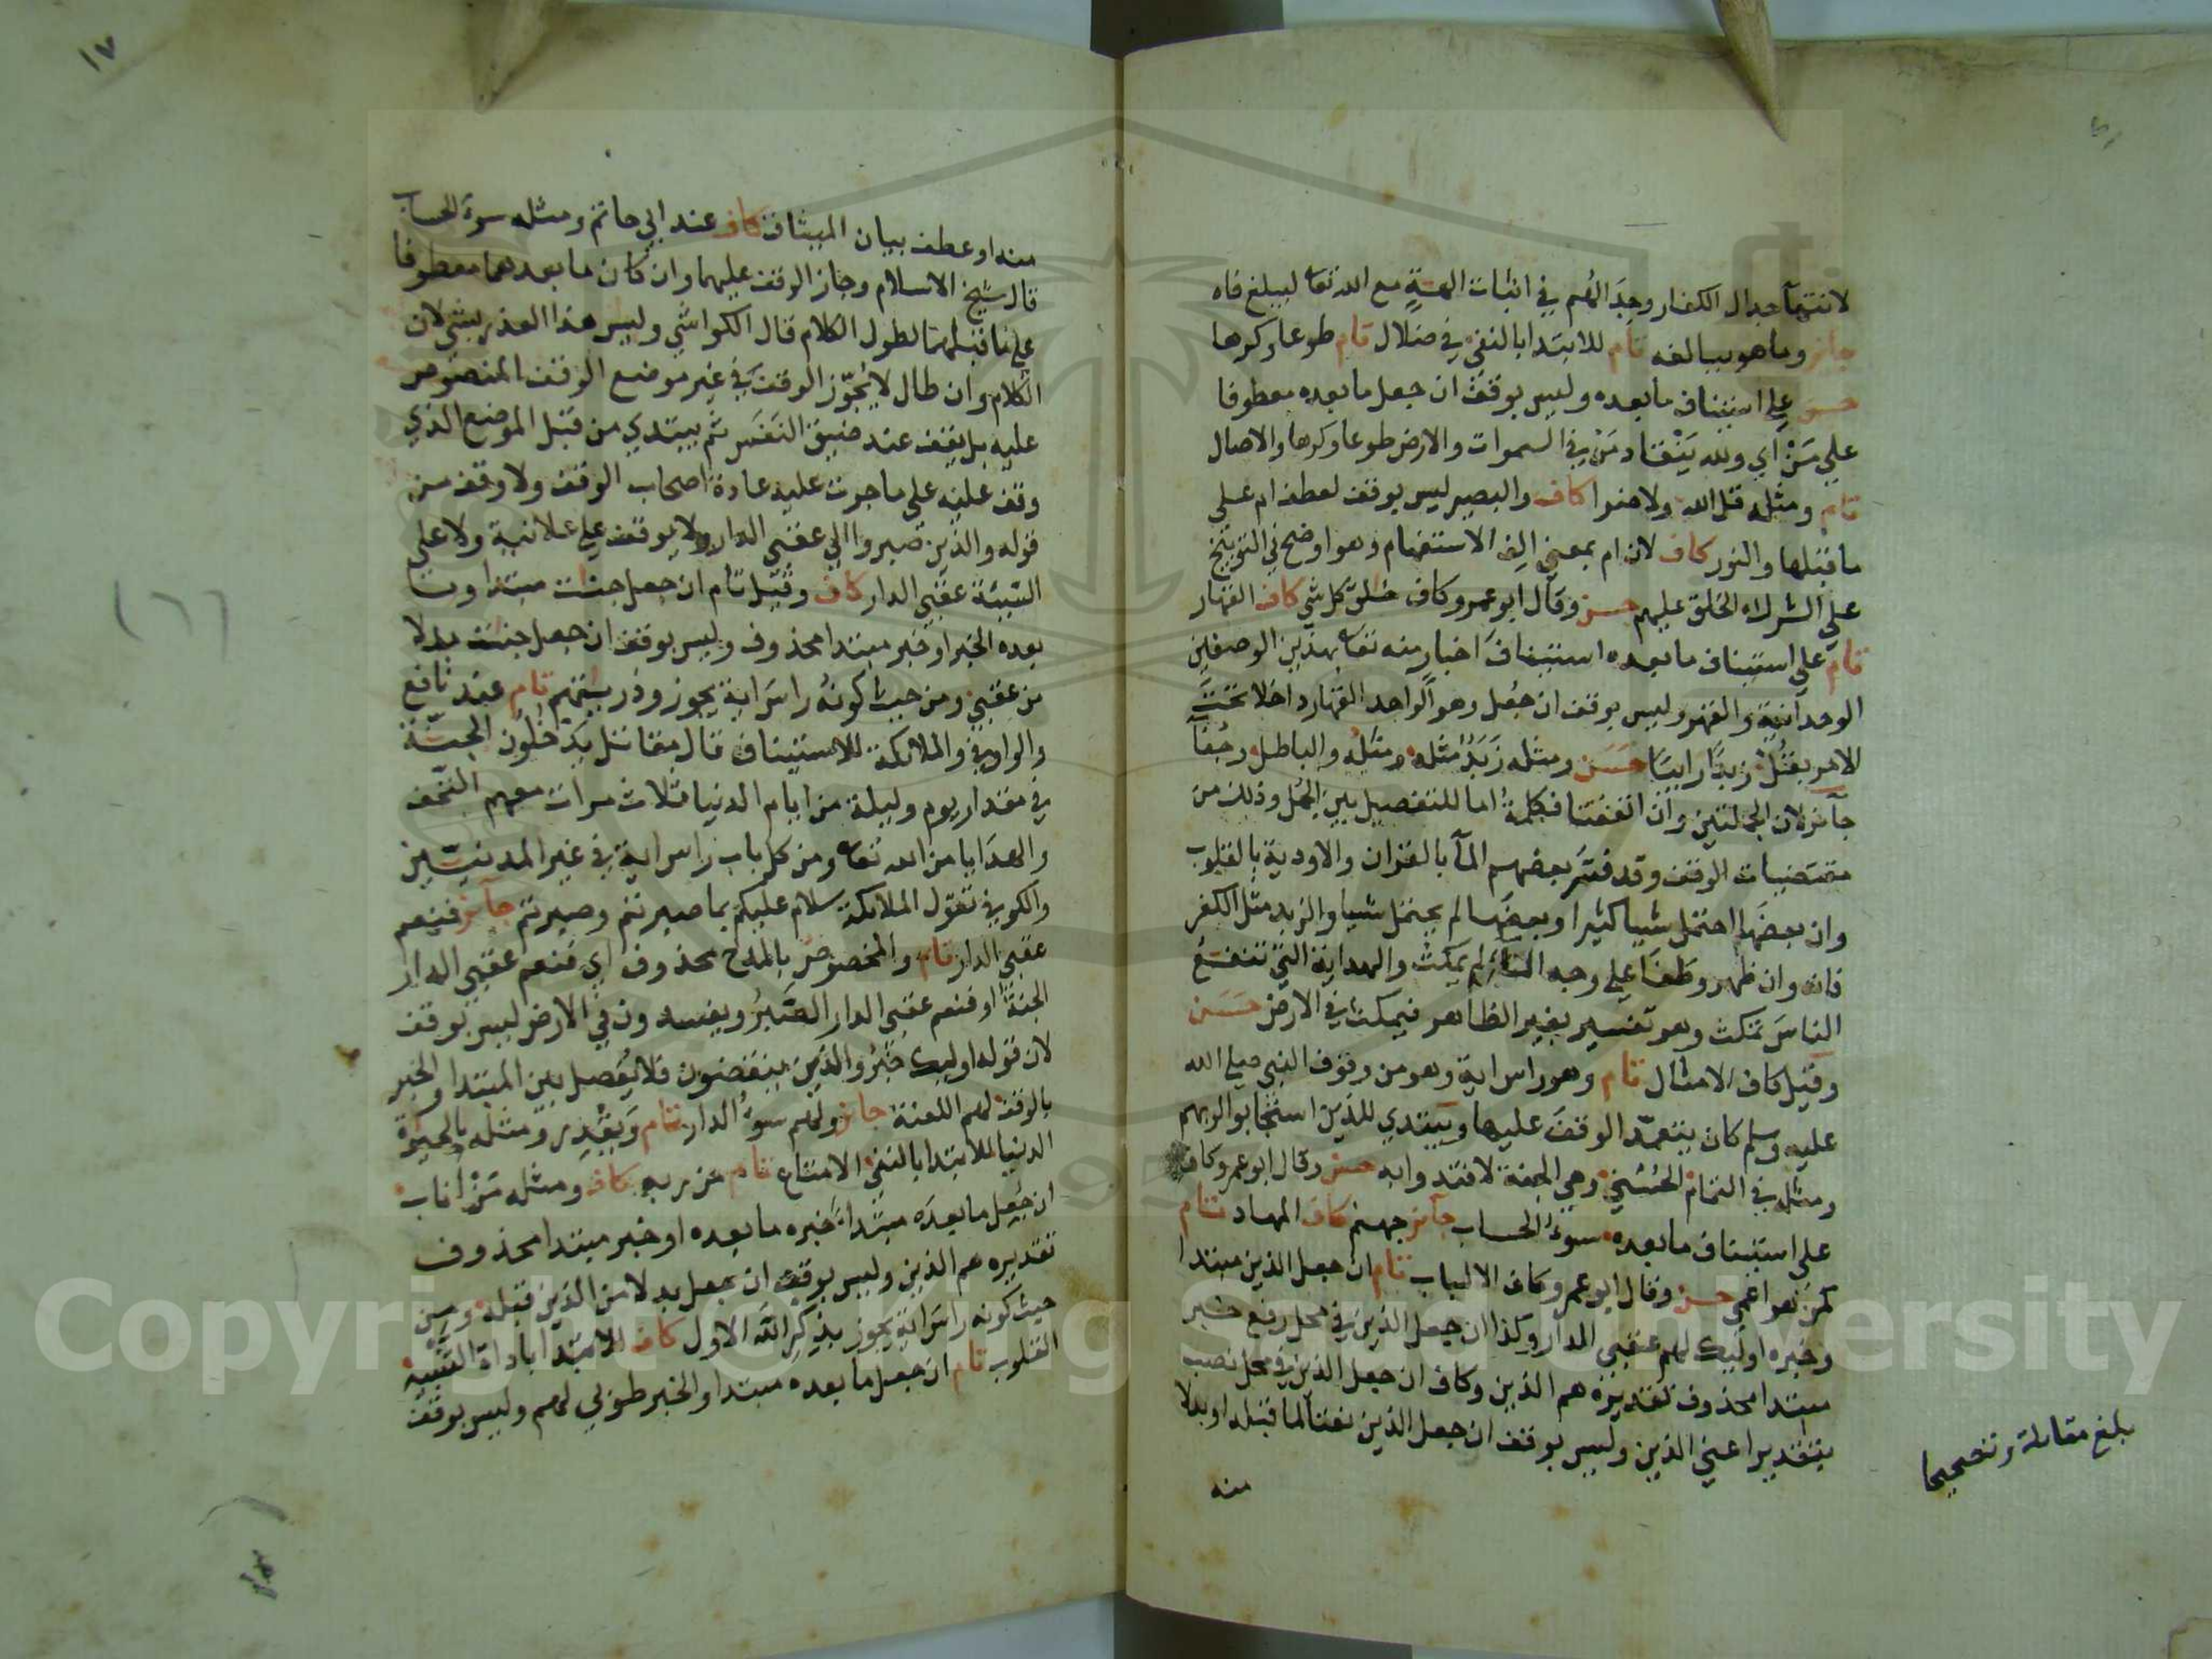 لانتهآ جدال الكفار وجدالهم في اثبات الهةٍ مع الله تعا ليبلغ فاه
جائز وماهو ببالغه تام للابتدا بالنفي في ضلال تام طوعا وكرها
حسن على استيناف مابعده وليس بوقف ان جعل مابعده معطوفا
علي مَنْ اي ولله ينقاد من في السموات والارض طوعا وكرها والاصال
تام ومثله قل الله ولا ضرا كاف والبصير ليس بوقف لعطف ام على
ماقبلها والنور كاف لان ام بمعنى الف الاستفهام وهو اوضح في التوبيخ
على الشرك الخلق عليهم حسن وقال ابو عمرو كاف خلق كل شي كاف القهار
تام على استيناف مابعده استيناف اخبار منه تعا بهذين الوصفين
الوحدانية والقهر وليس بوقف ان جعل وهو الواحد القهار داخلا تحت
الامر بقل زبدًا رابيًا حسن ومثله زَبَدٌ مثله ومثله والباطل وجفآ
جآئز لان الجملتين وان اتفقتا فكلمة اما للتفصيل بين الجمل وذلك من
مقتضيات الوقف وقد فسّر بعضهم المآ بالقران والاودية بالقلوب
وان بعضها احتمل شيا كثيرا وبعضها لم يحتمل شيا والزبد مثل الكفر
فانه وان ظهر وطفا على وجه المآء لم يمكث والهداية التي تنفع
الناسَ تمكث وهو تفسير بغير الظاهر فيمكث في الارض حسن
وقيل كاف الامثال تام وهو راس اية وهو من وقوف النبي صلى الله
عليه وسلم كان يتعمّد الوقف عليها ويبتدي للذين استجابوا لربهم
ومثله في التمام الحُسْنى وهي الجنة لافتدوا به حسن وقال ابو عمرو كاف
على استيناف مابعده سوءُ الحساب جآئز جهنم كاف المهاد تام
كمن هو اعمى حسن وقال ابو عمرو كاف الالباب تام ان جعل الذين مبتدا
وخبره اوليك لهم عقبى الدار وكذا ان جعل الذين في محل رفع خبر
مبتدا محذوف تقديره هم الذين وكاف ان جعل الذين في محل نصب
بتقدير اعني الذين وليس بوقف ان جعل الذين نعتا لما قبله او بدلا
منه
بلغ مقابلة وتصحيحا
١٧
منه او عطف بيان الميثاق كاف عند ابي حاتم ومثله سوء الحساب
قال شيخ الاسلام وجاز الوقف عليهما وان كان مابعدهما معطوفا
على ماقبلهما لطول الكلام قال الكواشي وليس هذا العذر بشي لان
الكلام وان طال لا يُجوّز الوقف في غير موضع الوقف المنصوص
عليه بل يقف عند ضيق النفس ثم يبتدي من قبل الموضع الذي
وقف عليه على ماجرت عليه عادة اصحاب الوقف ولا وقف من
قوله والذين صبروا الي عقبى الدار ولا يوقف على علانية ولا على
السّيّئة عقبى الدار كاف وقيل تام ان جعل جنات مبتدا وما
بعده الخبر او خبر مبتدا محذوف وليس بوقف ان جعل جنات بدلا
من عقبى ومن حيث كونه راسَ اية يجوز وذريتهم تام عند نافع
والواو في والملائكة للاستيناف قال مقاتل يدخلون الجنّة
في مقدار يوم وليلة من ايام الدنيا ثلاث مرات معهم التحف
والهدايا من الله تعا ومن كل باب راس اية في غير المدنيّين
والكوفي تقول الملائكة سلام عليكم بما صبرتم وصبرتم جآئز فنعم
عقبى الدار تام والمخصوص بالمدح محذوف اي فنعم عقبى الدار
الجنة او فنعم عقبى الدار الصَّبرُ ويفسدون في الارض ليس بوقف
لان قوله اوليك خبرُ والذين ينقضون فلا يُفصل بين المبتدا والخبر
بالوقف لهم اللعنة جائز ولهم سوءُ الدار تام ويقدِر ومثله بالحيوة
الدنيا للابتدا بالنفي الامتاع تام من ربه كاف ومثله مَنْ اناب
ان جُعل مابعده مبتدا خبره مابعده او خبر مبتدا محذوف
تقديره هم الذين وليس بوقف ان جعل بدلا من الذين قبله ومن
حيث كونه راسَ اية يجوز بذكر الله الاول كاف للابتدا باداة التنبيه
القلوب تام ان جعل مابعده مبتدا والخبر طوبى لهم وليس بوقف
Copyright © King Saud University